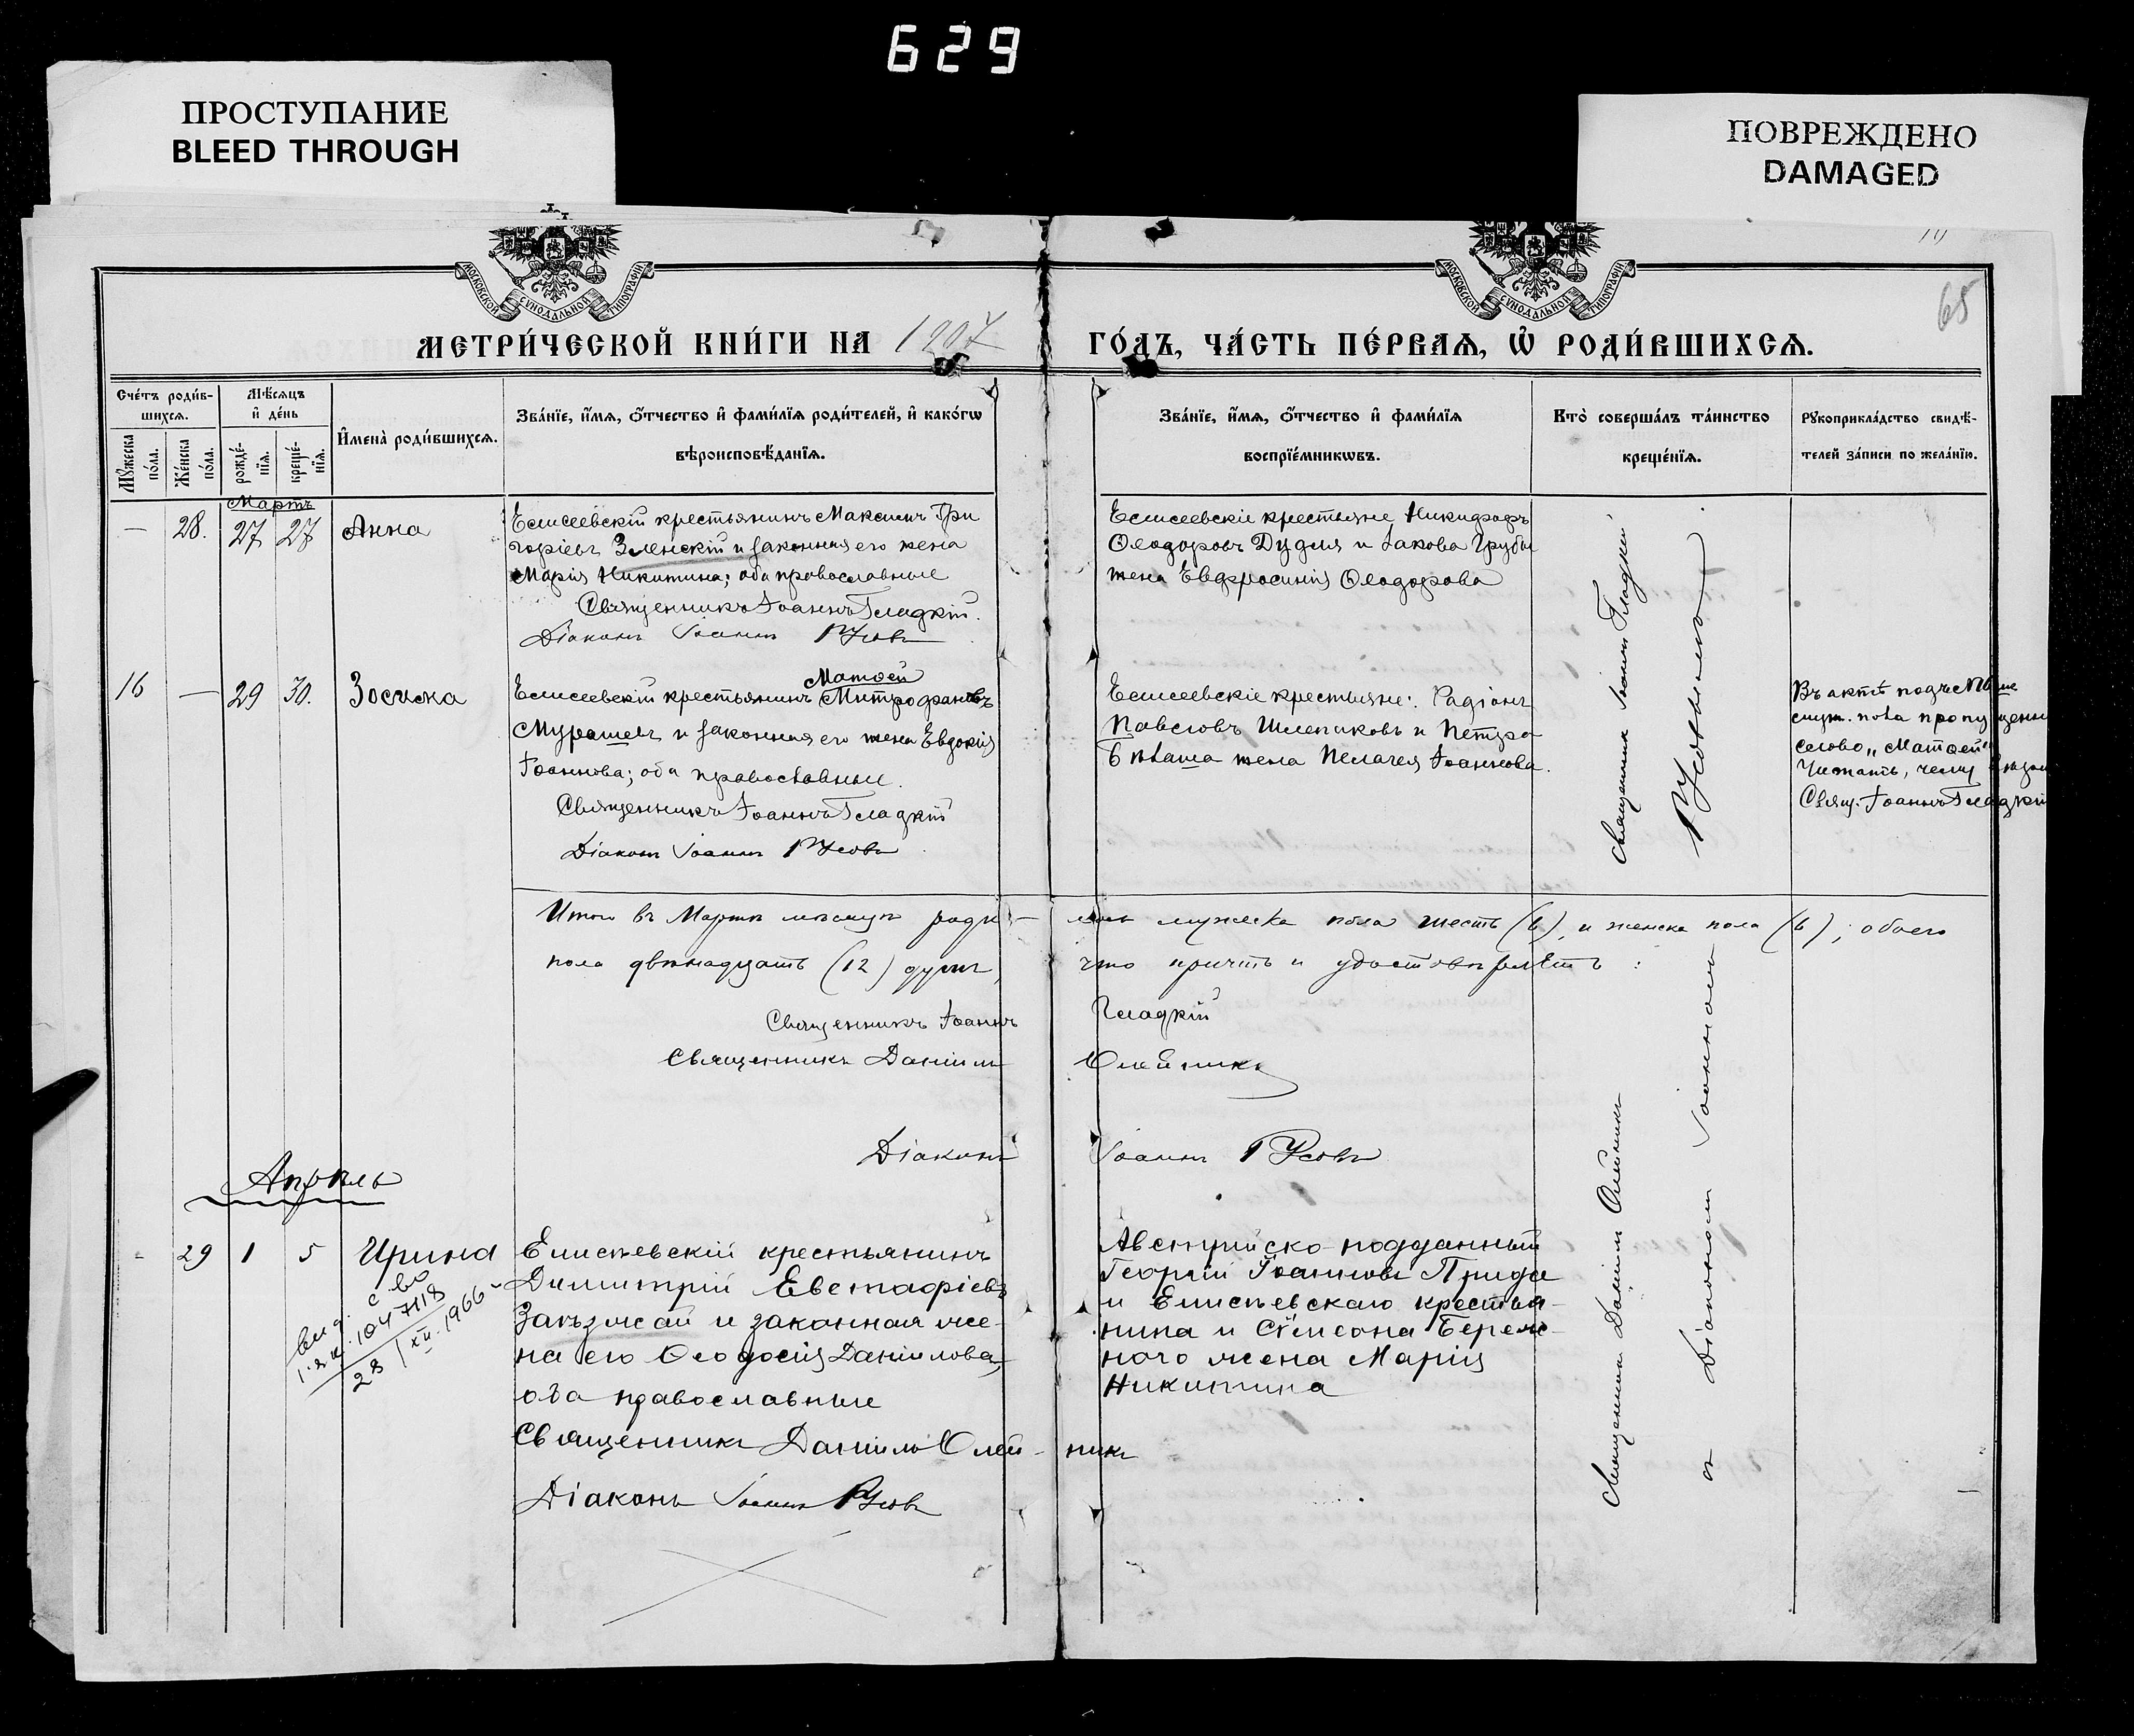 629
ПРОСТУПАНИЕ
BLEED THROUGH
ПОВРЕЖДЕНО
DAMAGED
МОСКОВСКОЙ СѴНОДАЛЬНОЙ ТИПОГРАФІИ
МОСКОВСКОЙ СѴНОДАЛЬНОЙ ТИПОГРАФІИ
65
МЕТРИ́ЧЕСКОЙ КНИ́ГИ НА 1907 ГО́ДЪ, ЧА́СТЬ ПЕ́РВАЯ, Ѡ҆ РОДИ́ВШИХСЯ.
Сче́тъ роди́в-
шихся.
Мѹ́жеска по́ла.
Же́нска по́ла.
Мѣ́сяцъ
и҆ де́нь
рожде́-
нїя.
креще́-
нїя.
И҆мена̀ роди́вшихся.
Зва́нїе, и҆́мя, ѻ҆́тчество и҆ фами́лїя роди́телей, и҆ како́гѡ
вѣроисповѣ́данїя.
Зва́нїе, и҆́мя, ѻ҆́тчество и҆ фами́лїя
воспрїе́мникѡвъ.
Кто̀ соверша́лъ та́инство
креще́нїя.
Рѹкоприкла́дство свидѣ́-
телей за́писи по жела́нїю.
Мартъ
— 28. 27 27 Анна
Елисеевскій крестьянинъ Максимъ Гри
горіевъ Зленскій и законная его жена
Марія Никитина; оба православные
Священникъ Іоаннъ Гладкій.
Діаконъ Іоаннъ Усовъ
Елисеевскіе крестьяне Никифоръ
Ѳеодоровъ Дудля и Іакова Грубы
жена Евфросинія Ѳеодорова
Священникъ Іоаннъ Гладкій
Усовымъ
16 — 29 30. Зосима
Матѳей
Елисеевскій крестьянинъ Митрофановъ
Мурашевъ и законная его жена Евдокія
Іоаннова; оба православные.
Священникъ Іоаннъ Гладкій
Діаконъ Іоаннъ Усовъ
Елисеевскіе крестьяне: Радіонъ
Павловъ Шлепиковъ и Петра
жена Пелагея Іоаннова.
Въ актѣ подъ №
муж. пола пропущенн
слово „Матѳей“
Читать, чему
Свящ. Іоаннъ Гладкій
Итого въ Мартѣ мѣсяцѣ роди- лось мужеска пола шесть (6), и женска пола (6); обоего
пола двѣнадцать (12) душъ, что причтъ и удостовѣряетъ:
Священникъ Іоаннъ Гладкій
Священникъ Даніилъ Олейникъ
Діаконъ Іоаннъ Усовъ
Апрѣль
- 29 1 5 Ирина
выд. с-во
1047118
28/XII-1966
Елисѣевскій крестьянинъ
Димитрій Евстафіевъ
и законная же-
на его Ѳеодосія Данилова,
оба православные
Священникъ Даніилъ Олей- никъ
Діаконъ Іоаннъ Усовъ
Австрійско-подданный
Георгій Іоанновъ Прида
и Елисѣевскаго крестья-
нина и Сѵмеона Береж-
ного жена Марія
Никитина
Священникъ Даніилъ Олейникъ
съ Діакономъ Іоанномъ